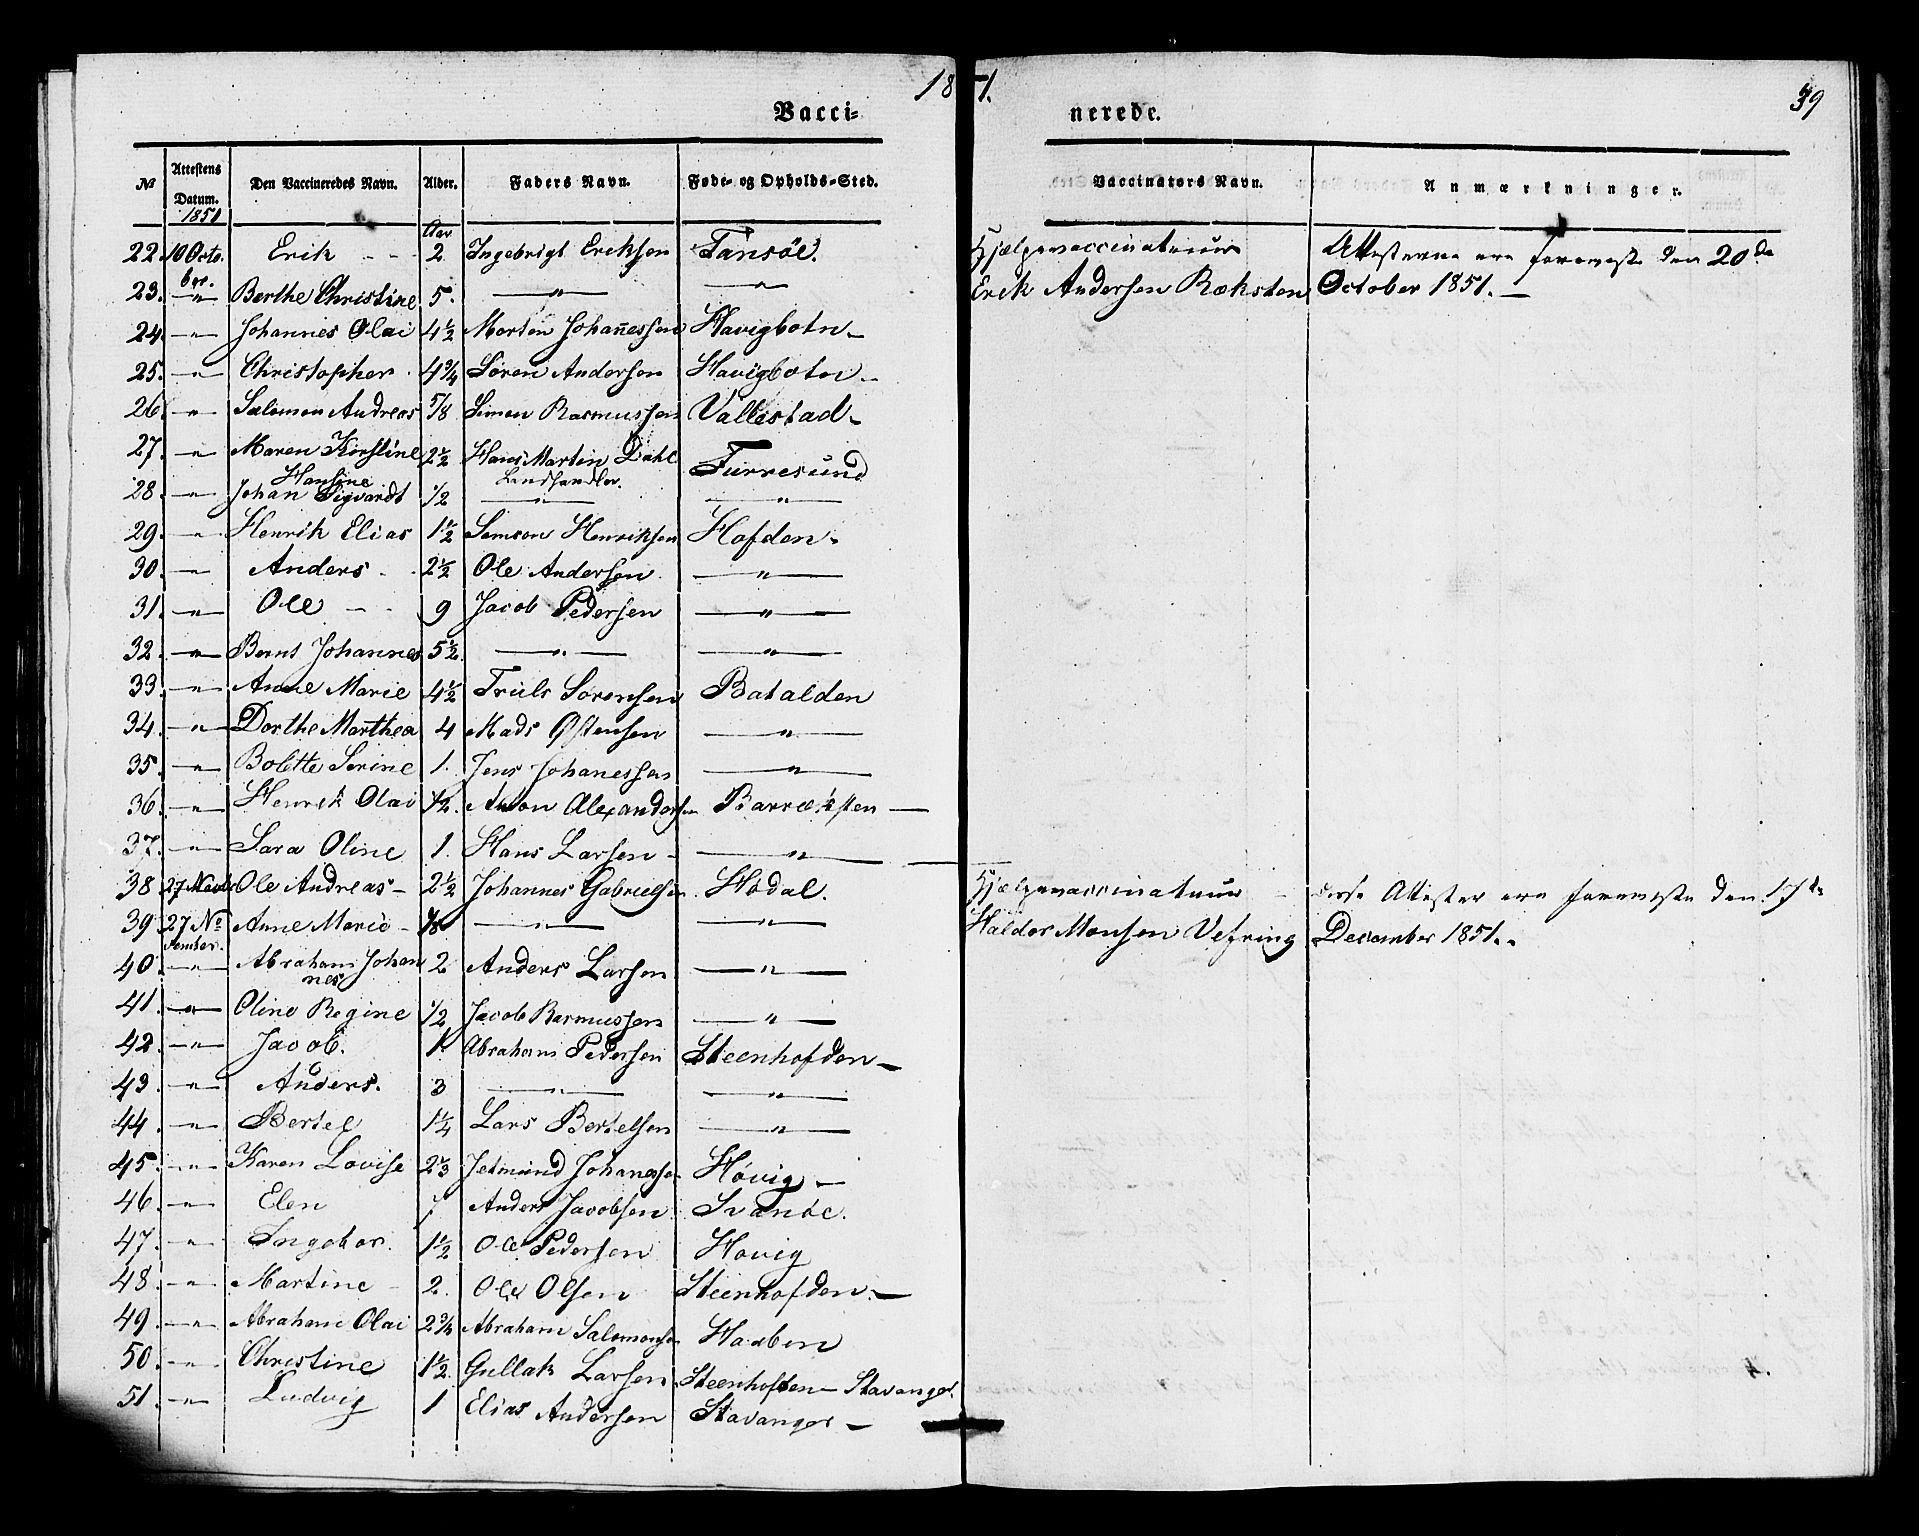 1851.
39
Vacci-nerede.
№ | Attestens Datum. | Den Vaccineredes Navn. | Alder. | Faders Navn. | Føde- og Opholds-Sted. | Vaccinators Navn. | Anmærkninger.
1851 | Aar
22. | 10 Octo- | Erik - - | 2 | Ingebrigt Eriksen | Tansöe. | Hjælpevaccinateur | Attesterne ere forevste den 20de
ber.
23. | -"- | Berthe Christine | 5. | -"- | -"- | Erik Andersen Ræksten | October 1851. -
24. | -"- | Johannes Olai | 4½ | Morten Johannessen | Havigbotn-
25. | -"- | Christopher | 4¾ | Sören Andersen | Havigbotn-
26. | -"- | Salomon Andreas | 5/8 | Simon Rasmussen | Vallestad-
27. | -"- | Maren Kirstine | 2½ | Hans Martin Dahl | Furresund
Hansine | Landhandler.
28 | -"- | Johan Sigvardt | ½ | -"- | -"-
29. | -"- | Henrik Elias | 1½ | Samson Henriksen | Hofden-
30. | -"- | Anders - | 2½ | Ole Andersen | -"-
31. | -"- | Ole - - | 9 | Jacob Pedersen | -"-
32. | -"- | Bernt Johannes | 5½ | -"- | -"-
33. | -"- | Anne Marie | 4½ | Truls Sörensen | Batalden
34. | -"- | Dorthe Marthea | 4 | Mads Østensen | -"-
35. | -"- | Bolette Serine | 1. | Jens Johanessen | -"-
36. | -"- | Henrik Olai | ½. | Anton Alexandersen | Barræksten -
37. | -"- | Sara Oline | 1. | Hans Larsen - | -"-
38 | 27 Novbr | Ole Andreas - | 2½ | Johannes Gabrielsen | Hodal. | Hjælpevaccinateur | disse Attester ere foreviste den 17de
39. | 27 No- | Anne Marie - | ⅛ | -"- | -"- | Haldor Monsen Vefring | December 1851. -
vember
40. | -"- | Abraham Johan | 2 | Anders Larsen | -"-
nes
41. | -"- | Oline Regine | ½ | Jacob Rasmussen | -"-
42. | -"- | Jacob. | 1. | Abraham Pedersen | Steenhofden-
43. | -"- | Anders. | 3 | -"- | -"-
44. | -"- | Bertel | 1¼ | Lars Bertelsen | -"-
45. | -"- | Karen Lovise | 2⅓ | Jetmund Johanessen | Hóvig -
46. | -"- | Elen | Anders Jacobsen | Svanöe.
47. | -"- | Ingebor. | 1½ | Ole Pedersen | Hovig
48. | -"- | Martine - | 2. | Ole Olsen | Steenhofden.-
49. | -"- | Abraham Olai | 2¾ | Abraham Salomonsen
50. | -"- | Christine | 1½. | Gullak Larsen | Steenhoften- Stavanger.
51. | -"- | Ludvig | 1 | Elias Andersen | Stavanger -